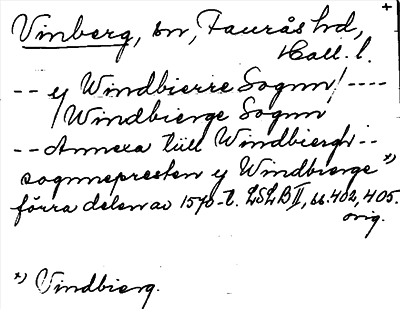 +
Vinberg, sn, Faurås hd,
Hall. l.
-- y Windbierre Sognn/----
/Windbierge Sognn
-- Annexa till Windbiergh --
sognnepresten y Windbierge *)
förra delen av 1570-t. LSLB II, ss. 402, 405.
orig.
*) Vindbierg.